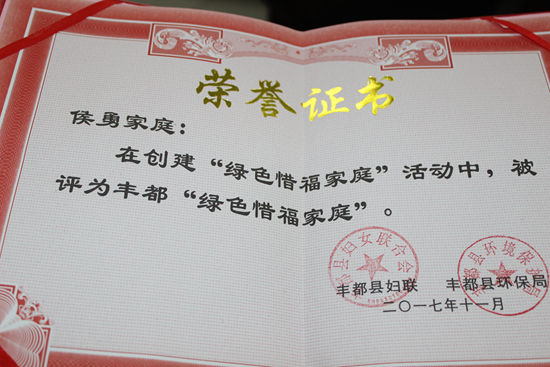 荣誉证书
侯勇家庭：
在创建“绿色惜福家庭”活动中，被
评为丰都“绿色惜福家庭”。
县妇女联合会
丰都县环境保护局
丰都县妇联 丰都县环保局
二〇一七年十一月